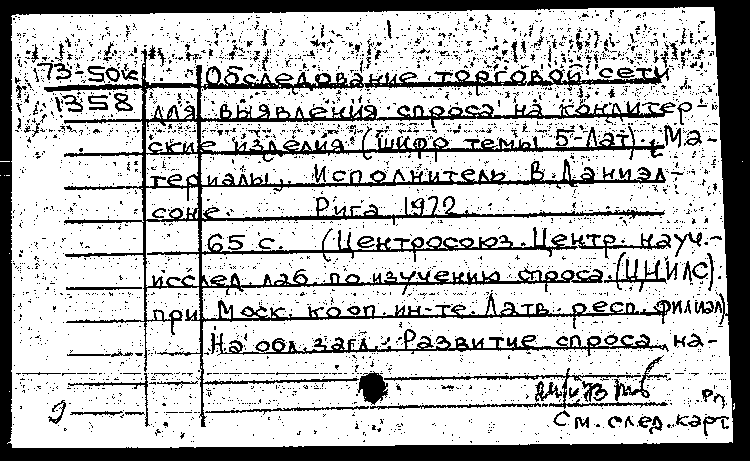 73-50к Обследование торговой сети
1358 для выявления спроса на кондитер-
ские изделия (шифр темы 5-Лат). Ма-
териалы. Исполнитель В. Даниэл-
соне. Рига, 1972.
65 с. (Центросоюз. Центр. науч.-
исслед. лаб. по изучению спроса (ЦНИЛС).
при Моск. кооп. ин-те. Латв. респ. филиал)
На обл. загл.: Развитие спроса на-
9
См. след. карт